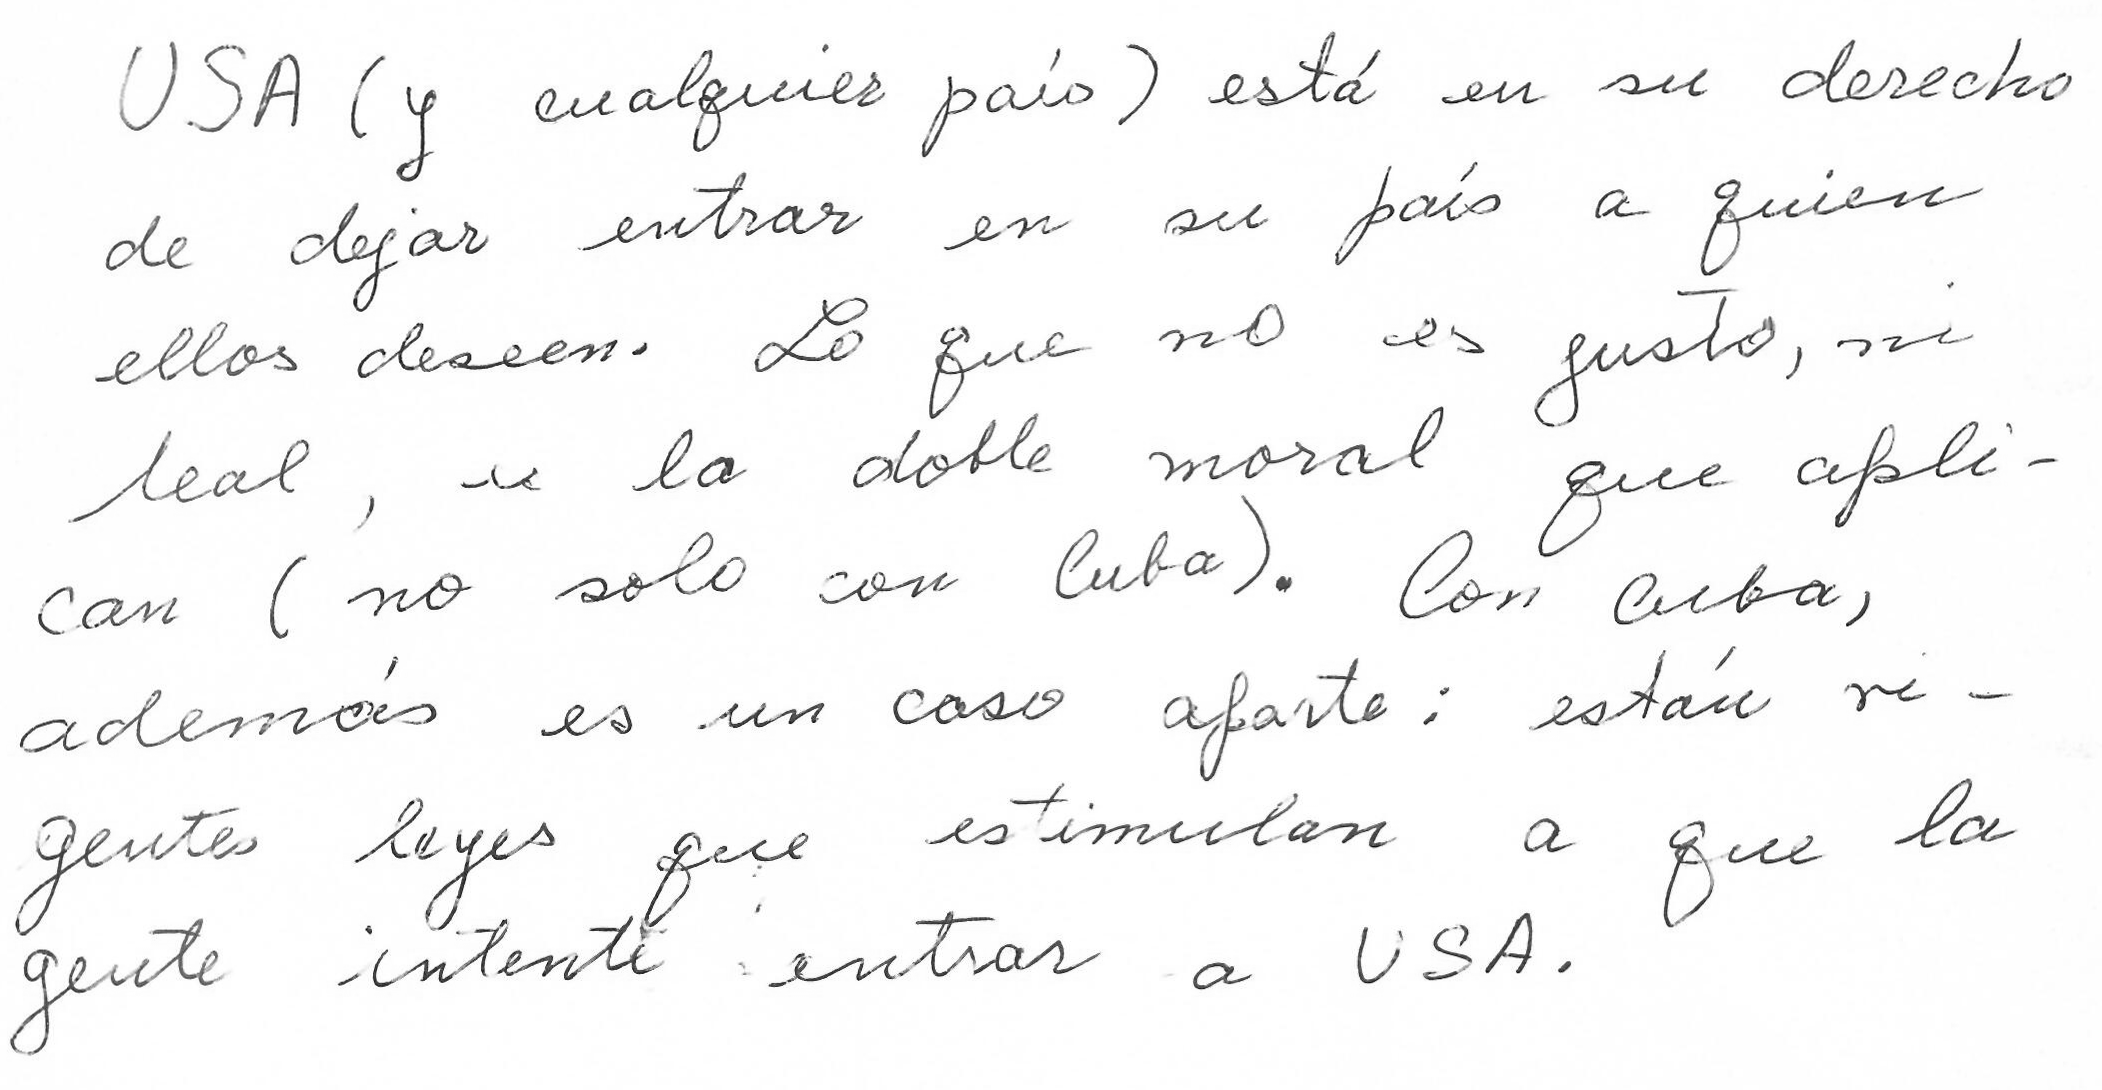 USA (y cualquier país) está en su derecho
de dejar entrar en su país a quien
ellos deseen. Lo que no es justo, ni
leal, es la doble moral que apli-
can (no solo con Cuba). Con Cuba,
además es un caso aparte: están vi-
gentes leyes que estimulan a que la
gente intente entrar a USA.